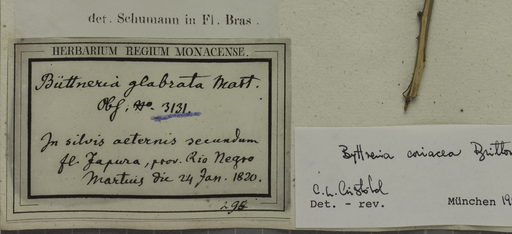 det. Schumann in Fl. Bras.
HERBARIUM REGIUM MONACENSE.
Büttneria glabrata Mart.
Obs. No. 3131.
In silvis aeternis secundum
fl. Japura, prov. Rio Negro
Martius die 24 Jan. 1820.
Byttneria coriacea Britton
C.L. Cristóbal
Det. - rev.
München 19